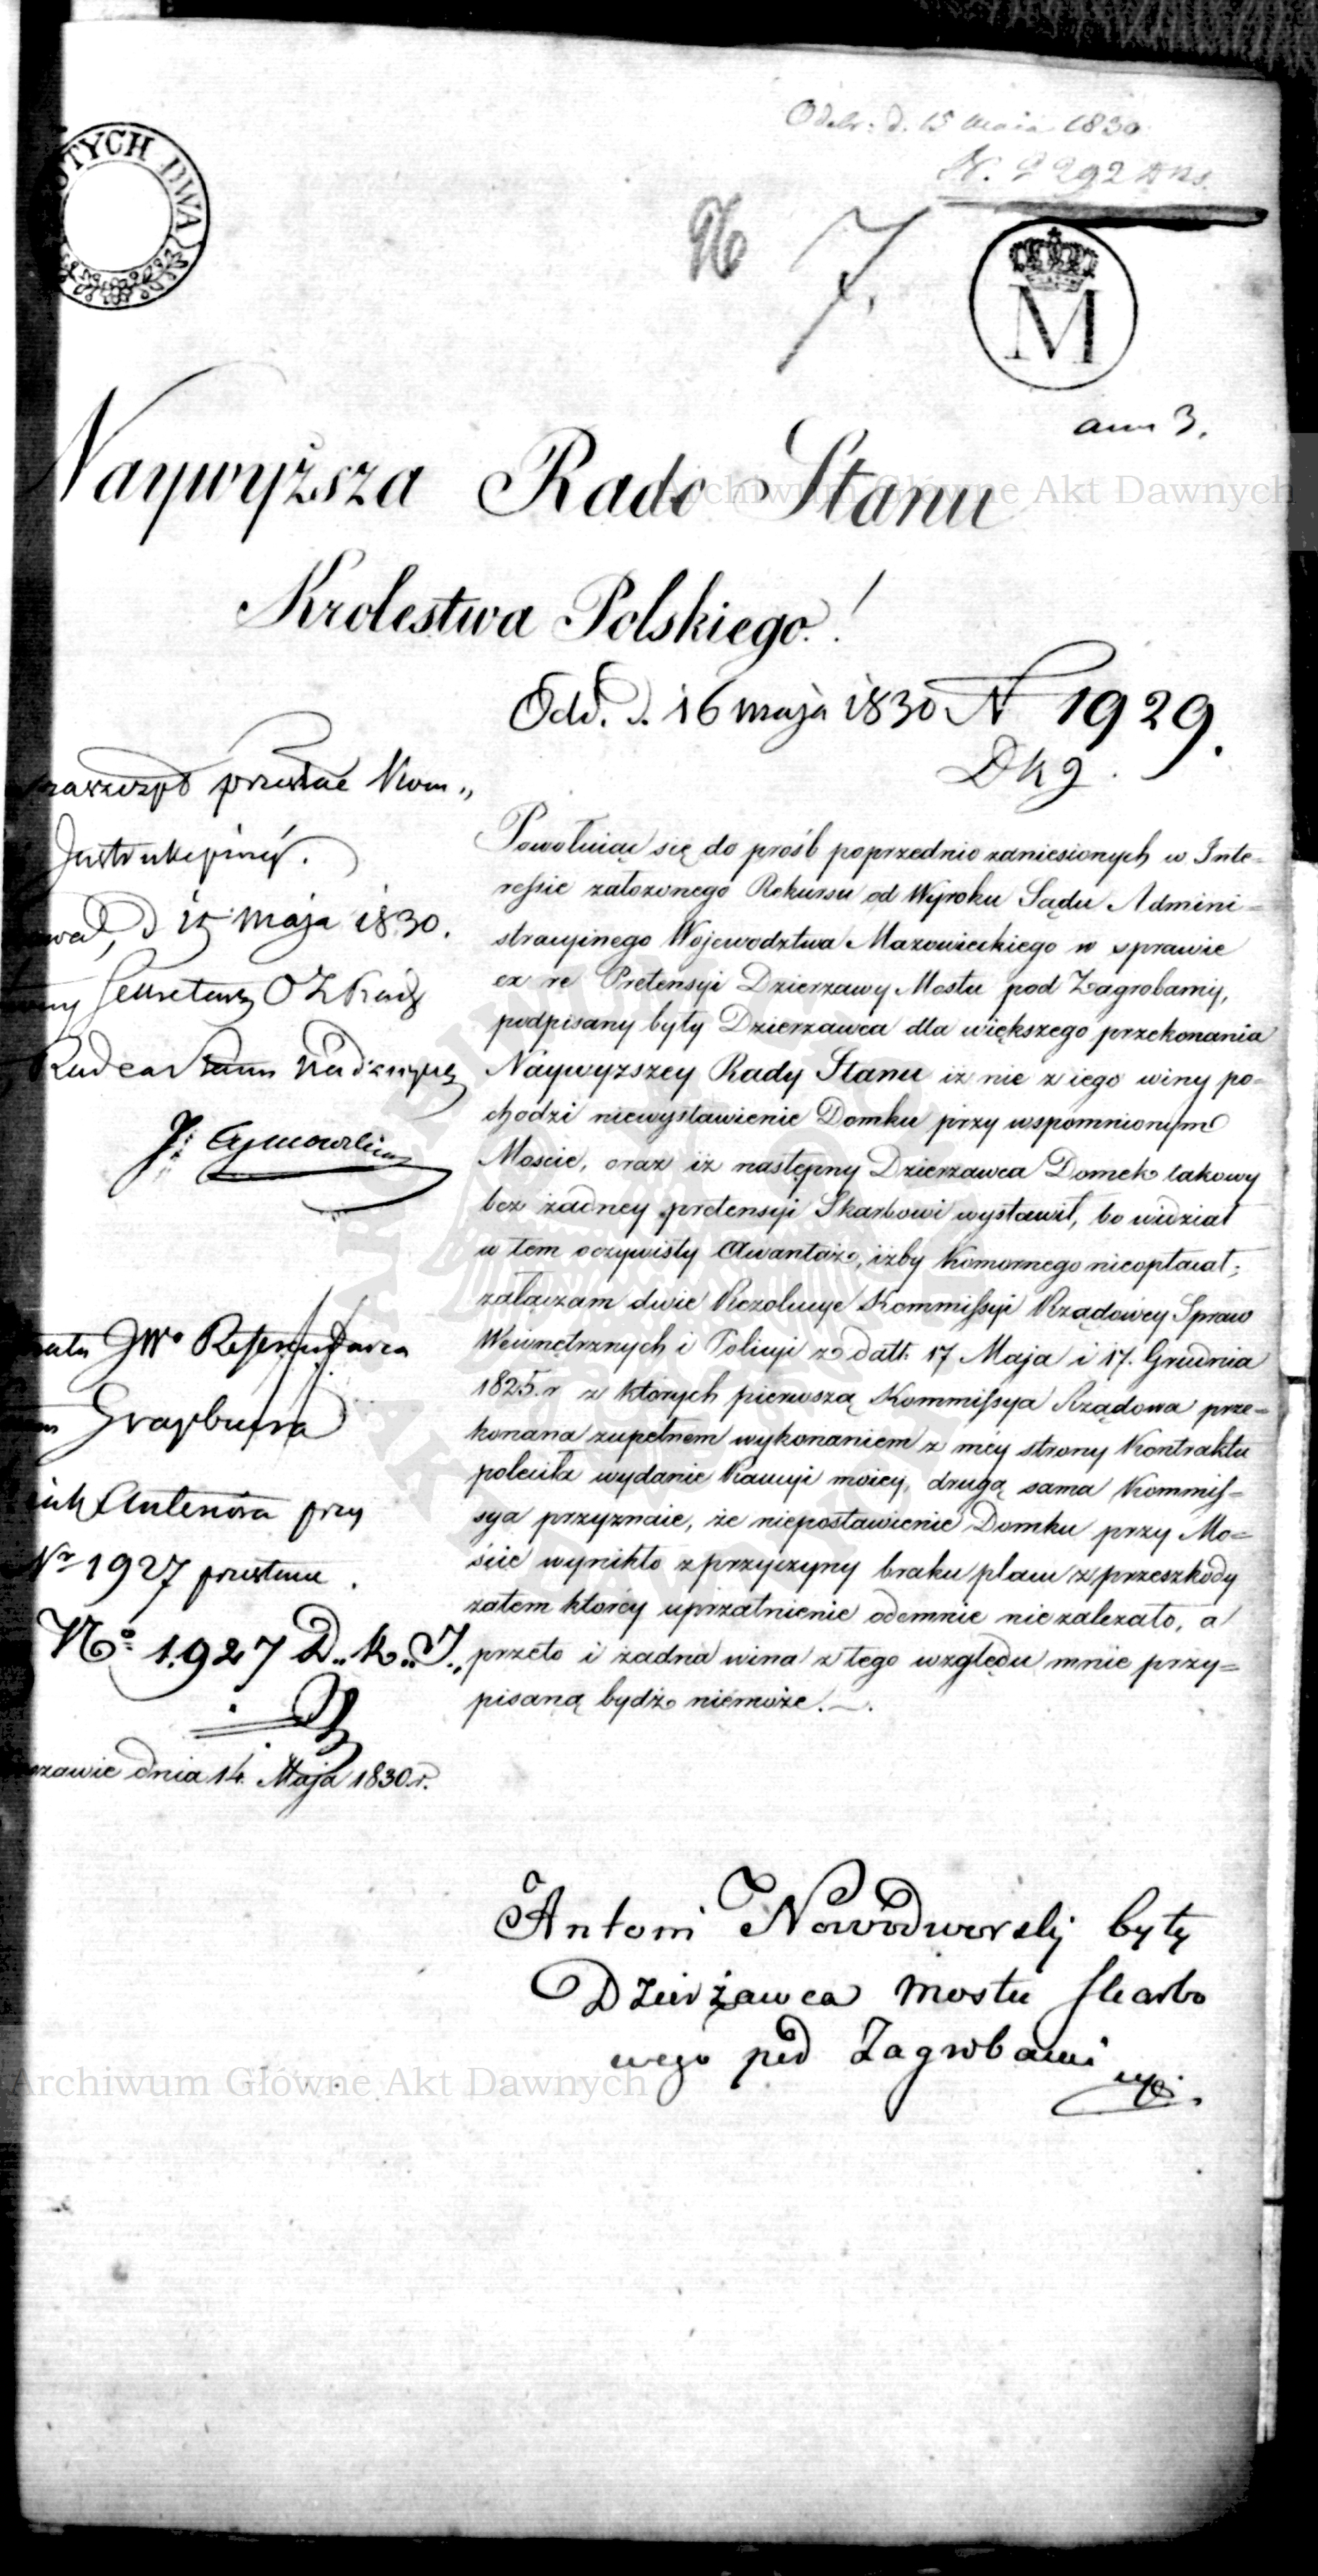 ZŁOTYCH DWA
Odebr: d. 15 Maia 1830
N. 9292
N 7.
M
ann 3.
Naywyższa Rado Stanu
Krolestwa Polskiego!
Odd. d. 16 maja 1830 N 1929.
Dkg.
przesłać Kom„
Instrukcyiney.
d 15 Maja 1830.
Sekretarz
Radca Stanu Nadzwyczay
Powołuiąc się do prośb poprzednio zaniesionych w Inte=
ressie założonego Rekursu od Wyroku Sądu Admini=
stracyinego Wojewodztwa Mazowieckiego w sprawie
ex re Pretensyi Dzierzawy Mostu pod Zagrobami,
podpisany były Dzierzawca dla większego przekonania
Naywyzszey Rady Stanu iż nie z iego winy po=
chodzi niewystawienie Domku przy wspomnionym
Moscie, oraz iż następny Dzierzawca Domek takowy
bez żadney pretensyi Skarbowi wystawił, bo widział
w tem oczywisty Awantaż, iżby Komornego nieopłacał;
załączam dwie Rezolucye Kommissyi Rządowey Spraw
Wewnętrznych i Policyi z datt: 17 Maja i 17. Grudnia
1825. r z których pierwszą Kommissya Rządowa prze=
konana zupełnem wykonaniem z mey strony Kontraktu
poleciła wydanie Kaucyi moiey, drugą sama Kommis=
sya przyznaie, że niepostawienie Domku przy Mo=
ście wynikło z przyczyny braku placu z przeszkody
zatem którey uprzątnienie odemnie nie zalezało, a
przeto i żadna wina z tego względu mnie przy=
pisaną bydź niemoże.
JWo Referendarza
Graybnera
przy
Nr 1927
No 1927 D. K. J.
dnia 14. Maja 1830 r.
Antoni Nowodworski były
Dzierżawca Mostu Skarbo
wego pod Zagrobami
mp.
Archiwum Główne Akt Dawnych
Archiwum Główne Akt Dawnych